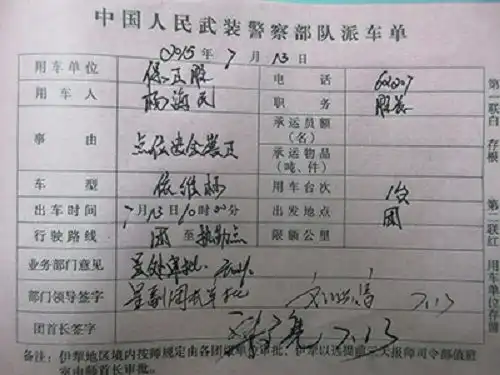 中国人民武装警察部队派车单
2015年7月13日
用车单位 保卫股 电话
用车人 杨海民 职务 股长
事由 承运员额(名)
承运物品(吨、件)
车型 依维柯 用车台次 1台
出车时间 7月13日10时00分 出发地点 团
行驶路线 团至执勤点 限额公里
业务部门意见 呈处审批
部门领导签字 呈副团长审批 7.13
团首长签字 7.13
备注:伊犁地区境内按师规定由各团级单位审批,伊犁以远提前三天报师司令部值班
室由师首长审批。
第一联白 存根
第二联红 用车单位存留